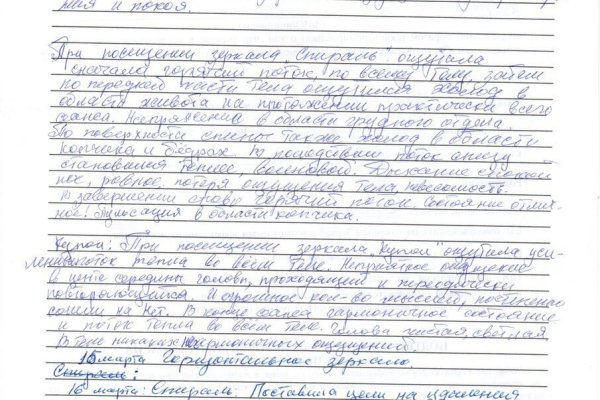 ния и покоя.
При посещении зеркала "Спираль" ощутила
сначала горячий поток, по всему телу, затем
по передней части тела ощущался холод в
области живота на протяжении практически всего
сеанса. Напряжение в области грудного отдела.
По поверхности спины также холод в области
копчика и бедрах. В последствии поток снизу
становился теплее, волновой. Дыхание спокой
ное, ровное, потеря ощущения тела, невесомость.
В завершении снова горячий поток. Состояние отлич-
ное. Пульсация в области копчика.
Купол: При посещении зеркала "Купол" ощутила уси-
ление поток тепла во всем теле. Неприятное ощущение
в центе середины головы, проходящий и периодически
повторяющийся. И огромное кол-во мыслей, постепенно
сошли на нет. В конце сеанса гармоничное состояние
и поток тепла во всем теле. Голова чистая, светлая,
в теле никаких не гармоничных ощущений.
15 марта Горизонтальное зеркало.
Спираль:
16 марта: Спираль. Поставила цели на удаления